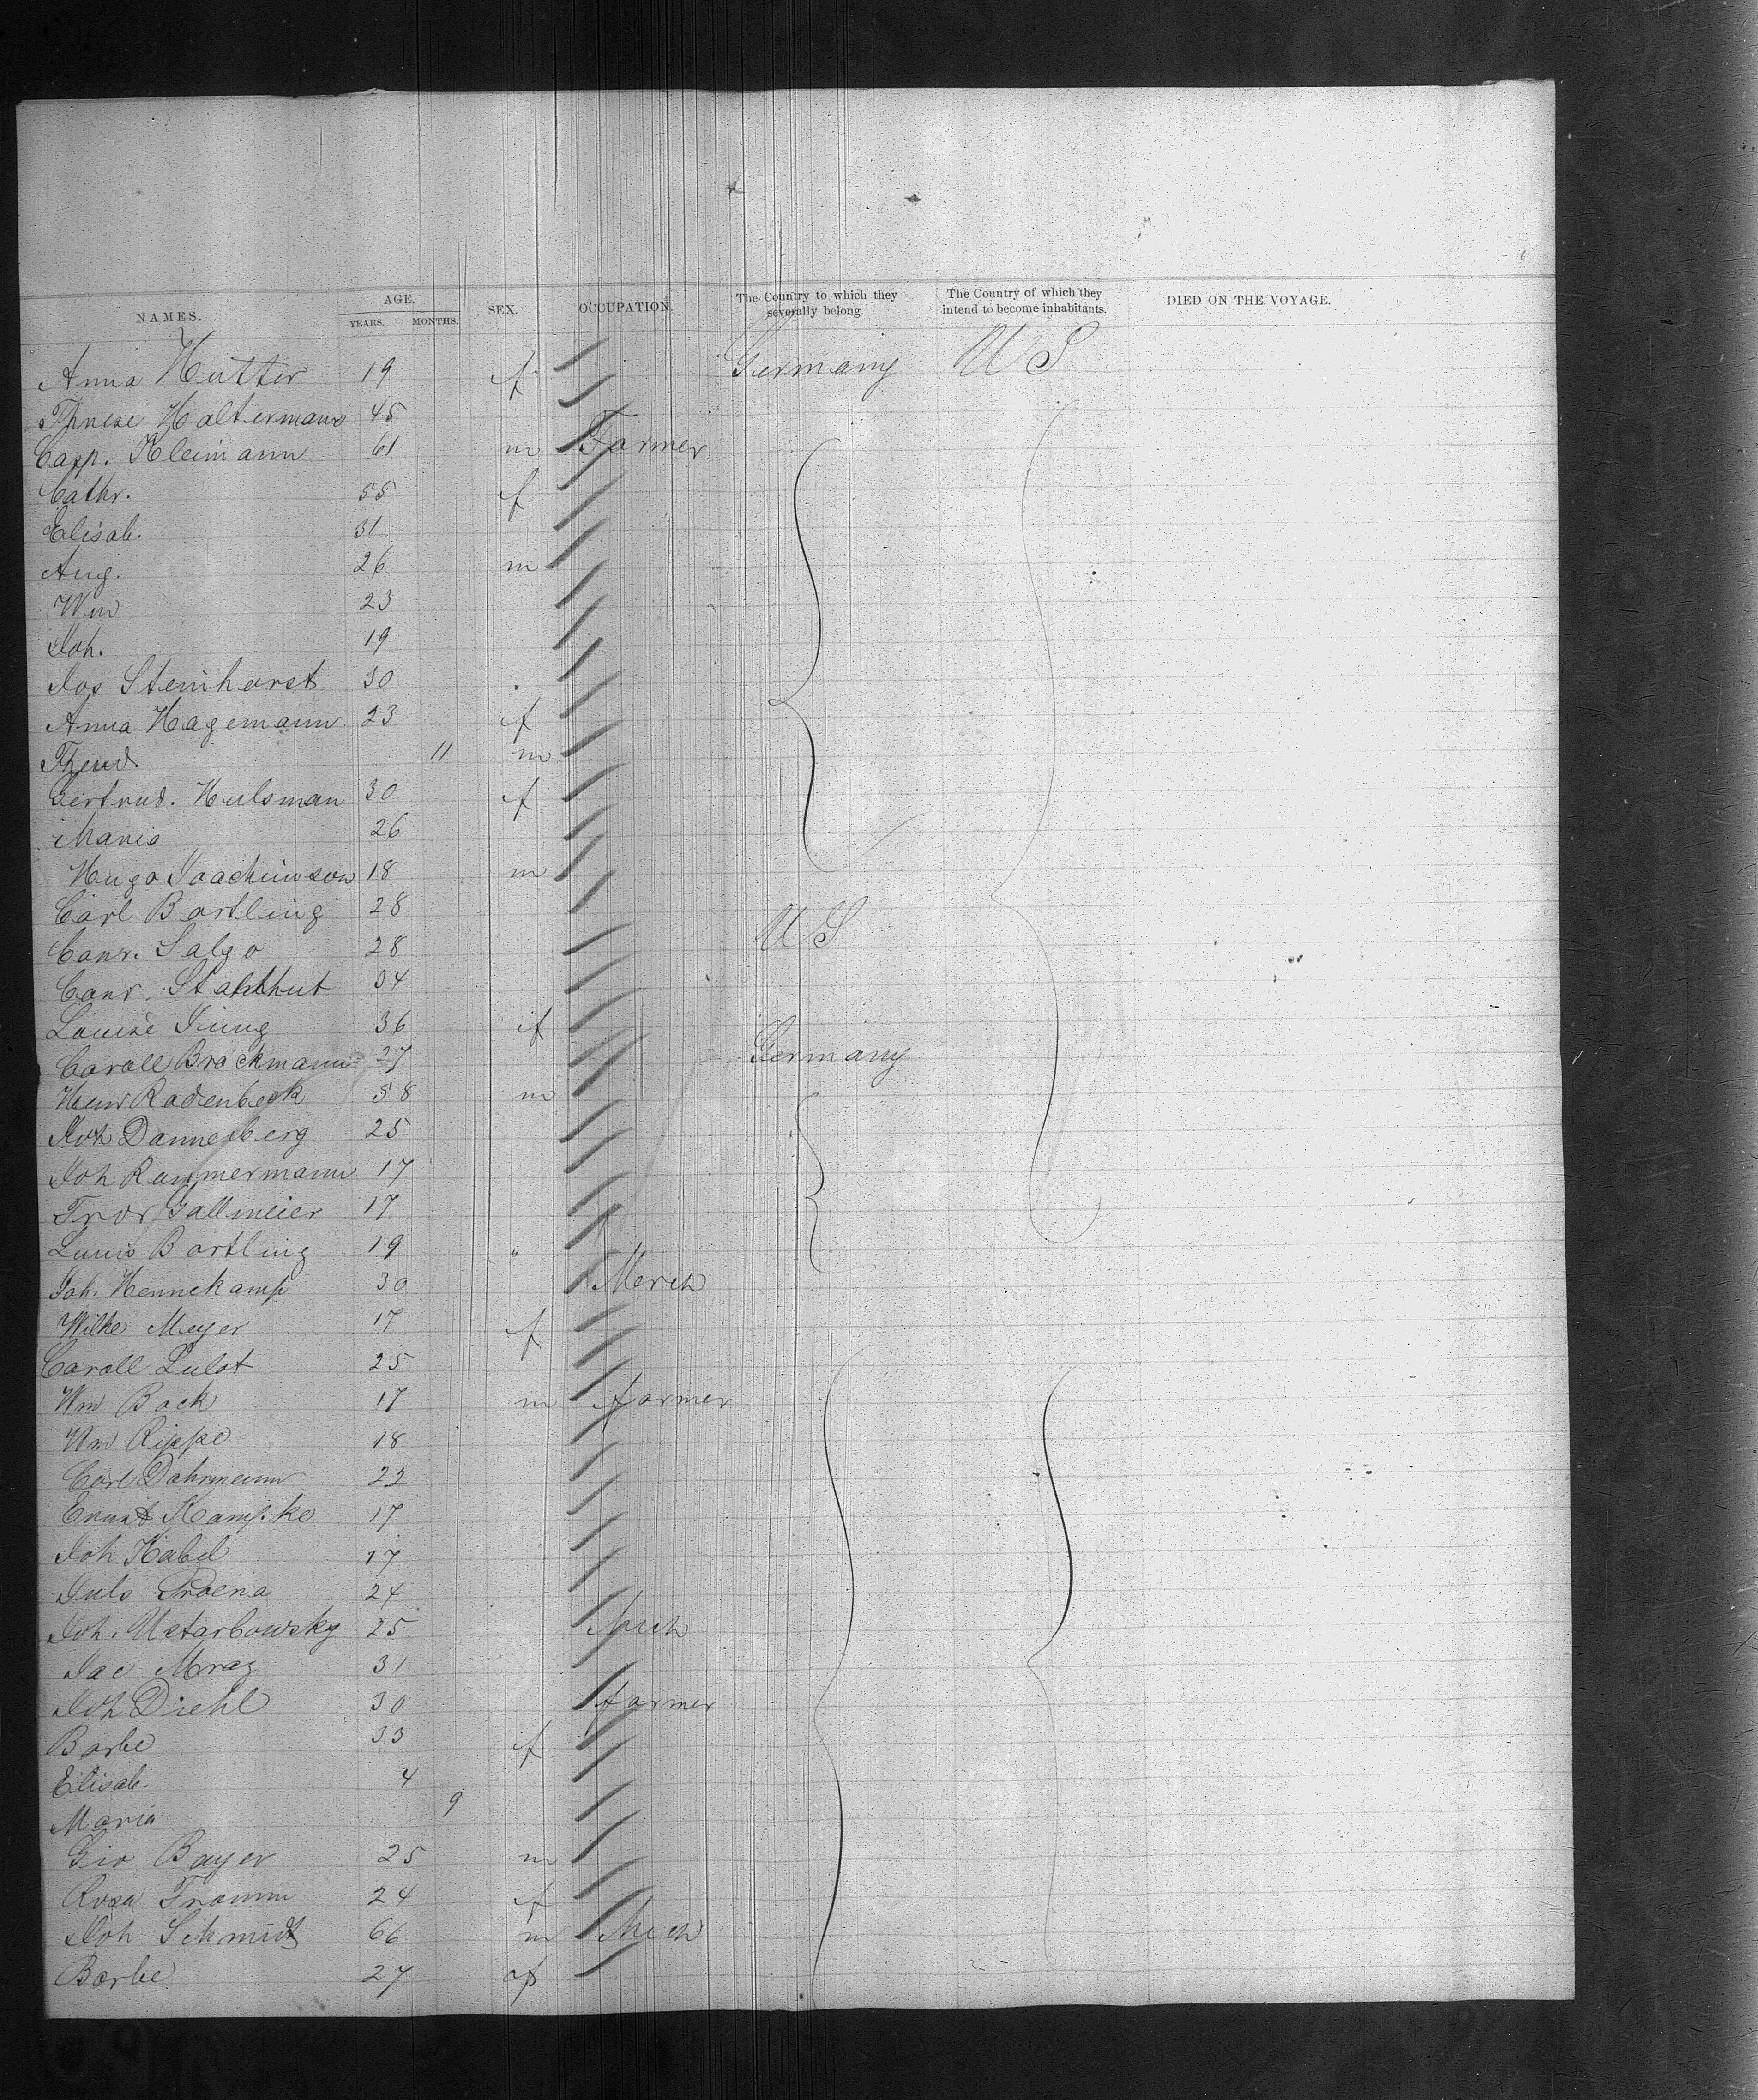 NAMES. AGE. YEARS. MONTHS. SEX. OCCUPATION. The Country to which they severally belong. The Country of which they intend to become inhabitants. DIED ON THE VOYAGE.
Anna Hutter 19 f Germany US
Haltermann 45
Casp. Kleimann 61 m Farmer
Cathr. 55 f
Elisab. 31
Aug. 26 m
Wm 23
Joh. 19
Jos Steinhorst 30
Anna Hagemann 23 f
Theod. 11 m
Gertrud. Hulsman 30 f
Maria 26
Hugo Joachimson 18 m
Carl Bartling 28 US
Conr. Salge 28
Conr. Stahlhut 34
Louise Jung 36 f
Caroll Brackmann 27 Germany
Heinr Radenbeck 58 m
Joh Danneberg 25
Joh Rammermann 17
Fror Fallmeier 17
Louis Bartling 19 "
Joh. Hennekamp 30 Merch
Wilhe Meyer 17 f
Caroll 25
Wm Bock 17 m farmer
Wm Rippe 18
Carl Dahrmann 22
Ernst Kampke 17
Joh Habel 17
Juls 24
Joh. Ustarbowsky 25 Mech
Jac Mraz 31
Joh Diehl 30 farmer
Barbe 33 f
Elisab. 4
Maria 9
Geo Bayer 25 m
Rosa Framm 24 f
Joh Schmidt 66 m Mech
Barbe 27 f